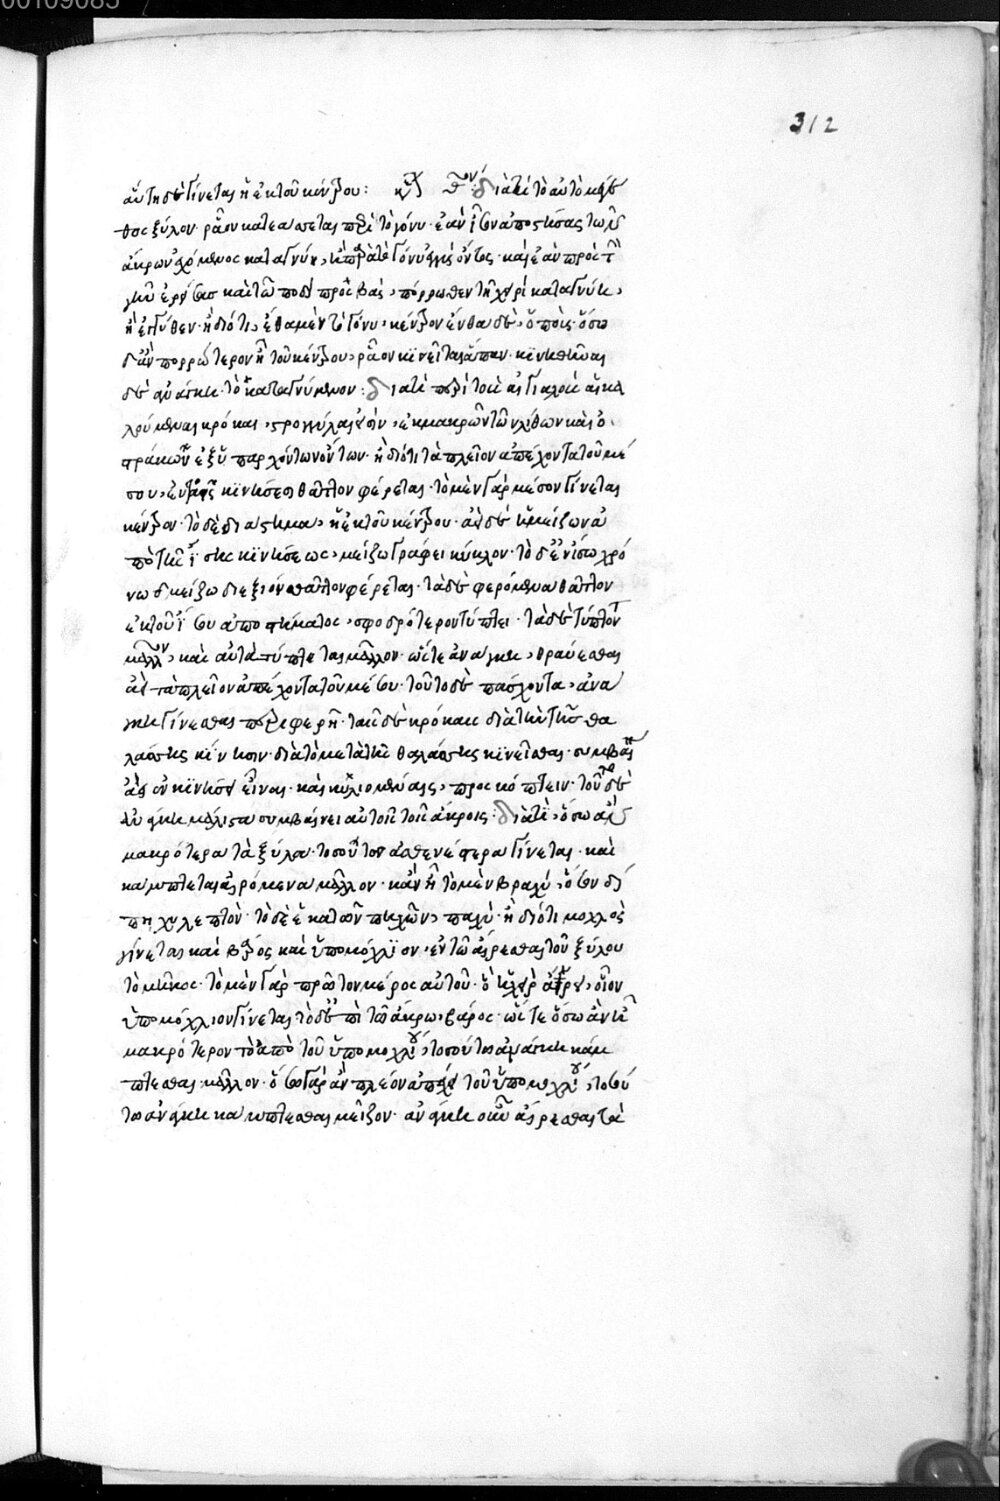 00109085
312
αὕτη δὲ γίνεται ἡ ἐκ τοῦ κέντρου: διατί τὸ αὐτὸ μέγε
θος ξύλον ῥᾷον κατεάσσεται περὶ τὸ γόνυ· ἐὰν ἴσον ἀποστήσας τῶν
ἄκρων ἐχόμενος καταγνύῃ, ἢ παρὰ τὸ γόνυ ἐγγὺς ὄντος· καὶ ἐὰν πρὸς τὴν
γῆν ἐρείσας καὶ τῷ ποδὶ προσβὰς, πόρρωθεν τῇ χειρὶ καταγνύῃ,
ἢ ἐγγύθεν· ἢ διότι, ἔνθα μὲν τὸ γόνυ, κέντρον ἔνθα δὲ, ὁ πούς· ὅσω
δ' ἂν πορρώτερον ᾖ τοῦ κέντρου, ῥᾷον κινεῖται ἅπαν· κινηθῆναι
δὲ ἀνάγκη τὸ καταγνύμενον: διατί περὶ τοὺς αἰγιαλοὺς αἱ κα
λούμεναι κρόκαι, στρογγύλαι εἰσὶν, ἐκ μακρῶν τῶν λίθων καὶ ὀ
στράκων ἐξ ὑπαρχόντων ὄντων· ἢ διότι τὰ πλεῖον ἀπέχοντα τοῦ μέ
σου, ἐν ταῖς κινήσεσι θᾶττον φέρεται· τὸ μὲν γὰρ μέσον γίνεται
κέντρον· τὸ δὲ διάστημα, ἡ ἐκ τοῦ κέντρου· ἀεὶ δὲ ἡ μείζων ἀ
πὸ τῆς ἴσης κινήσεως, μείζω γράφει κύκλον· τὸ δ' ἐν ἴσω χρό
νω μείζω διεξιὸν θᾶττον φέρεται· τὰ δὲ φερόμενα θᾶττον
ἐκ τοῦ ἴσου ἀποστήματος, σφοδρότερον τύπτει· τὰ δὲ τύπτοντα
μᾶλλον, καὶ αὐτὰ τύπτεται μᾶλλον· ὥστε ἀνάγκη, θραύεσθαι
ἀεὶ τὰ πλεῖον ἀπέχοντα τοῦ μέσου· τοῦτο δὲ πάσχοντα, ἀνά
γκη γίνεσθαι περιφερῆ· ταῖς δὲ κρόκαις διὰ τὴν τῆς θα
λάσσης κίνησιν· διὰ τὸ μετὰ τῆς θαλάσσης κινεῖσθαι· συμβαίνει
ἀεὶ ἐν κινήσει εἶναι· καὶ κυλιομέναις, προσκόπτειν· τοῦτο δὲ
ἀνάγκη μάλιστα συμβαίνει αὐτοῖς τοῖς ἄκροις: διατί, ὅσω ἂν
μακρότερα τὰ ξύλα· τοσοῦτον ἀσθενέστερα γίνεται· καὶ
κάμπτεται αἰρόμενα μᾶλλον· κἂν ᾖ τὸ μὲν βραχὺ, ὅσον δί
πηχυ λεπτὸν· τὸ δὲ ἑκατὸν πηχῶν, παχύ· ἢ διότι μοχλὸς
γίνεται καὶ βάρος καὶ ὑπομόχλιον, ἐν τῷ αἴρεσθαι τοῦ ξύλου
τὸ μῆκος· τὸ μὲν γὰρ πρῶτον μέρος αὐτοῦ· ὃ ἡ χεὶρ αἴρει, οἷον
ὑπομόχλιον γίνεται τὸ δ' ἐπὶ τῷ ἄκρω, βάρος· ὥστε ὅσω ἂν ᾖ
μακρότερον τὸ ἀπὸ τοῦ ὑπομοχλίου, τοσούτω ἀνάγκη κάμ
πτεσθαι μᾶλλον· ὅσω γὰρ ἂν πλέον ἀπέχει τοῦ ὑπομοχλίου, τοσού
τω ἀνάγκη κάμπτεσθαι μεῖζον· ἀνάγκη οὖν αἴρεσθαι τὰ